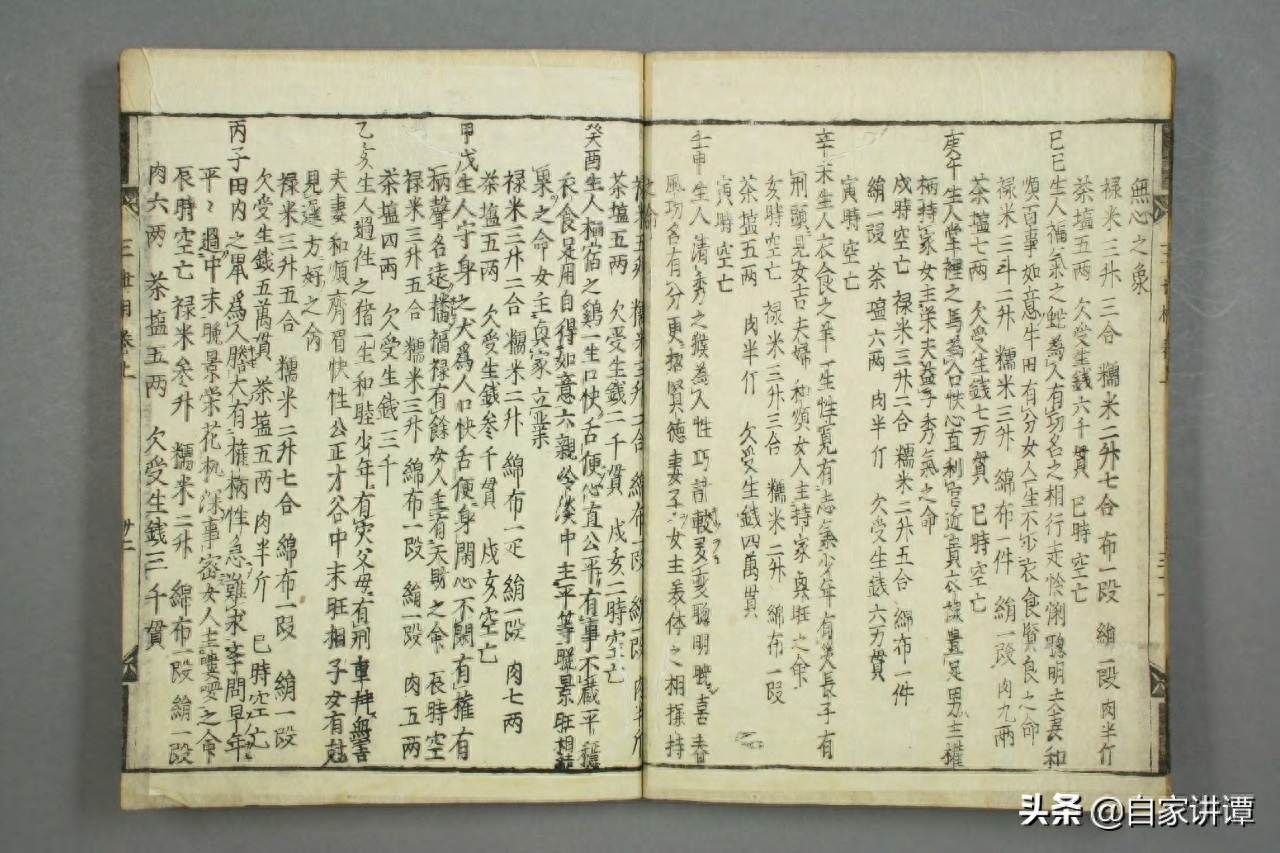 無心之象
祿米三升三合 糯米二升七合 布一段 絹一段 肉半斤
茶塩五两 欠受生銭六千貫 巳時空亡
己巳生人福氣之蛇為人有功名之相行走恰悧聰明夫妻和
順百事如意牛田有分女人一生不少衣食賢良之命
祿米三斗二升 糯米三升 綿布一件 絹一段 肉九两
茶塩七两 欠受生銭七万貫 巳時空亡
庚午生人堂裡之馬為人口快心直利官近貴衣祿豊足男主權
柄持家女主栄夫益子秀氣之命
戌時空亡 祿米三升二合 糯米二升五合 綿布一件
絹一段 茶塩六两 肉半斤 欠受生銭六万貫
寅時空亡
辛未生人衣食之羊一生性寛有志氣少年有災長子有
刑頭見女吉夫婦和順女人主持家興旺之命
亥時空亡 祿米三升三合 糯米二升 綿布一段
茶塩五两 肉半斤 欠受生銭四萬貫
寅時空亡
壬申生人清秀之猴為人性巧計較多变聰明機喜春
風功名有分更招賢德妻子女主美体之相操持
五升 糯米三升二合 綿布一段 絹一段 肉半斤
茶塩五两 欠受生銭二千貫 戌亥二時空亡
癸酉生人栖宿之鷄一生口快舌便心直公平有事不蔵平穏
衣食足用自得如意六親冷淡中主平等晚景旺相結
菓之命女主興家立業
祿米三升二合 糯米二升 綿布一疋 絹一段 肉七两
茶塩五两 欠受生銭叁千貫 戌亥空亡
甲戌生人守身之犬為人口快舌便身閑心不閑有權有
柄聲名遠播福祿有餘女人主有天財之命 辰時空
祿米三升五合 糯米三升 綿布一段 絹一段 肉五两
茶塩四两 欠受生銭三千
乙亥生人過徃之猪一生和睦少年有災父母有刑重拜無害
夫妻和順齊眉快性公正才谷中末旺相子女有尅
見遲方好之命
祿米三升五合 糯米二升七合 綿布一段 絹一段
欠受生銭五萬貫 茶塩五两 肉半斤 巳時空亡
丙子田内之鼠為人膽大有權柄性急難求学問早年
平〻過中末晚景栄花机深事密女人主嘍㘇之命
辰時空亡 祿米叁升 糯米二升 綿布一段 絹一段
肉六两 茶塩五两 欠受生銭三千貫
头条 @自家讲谭